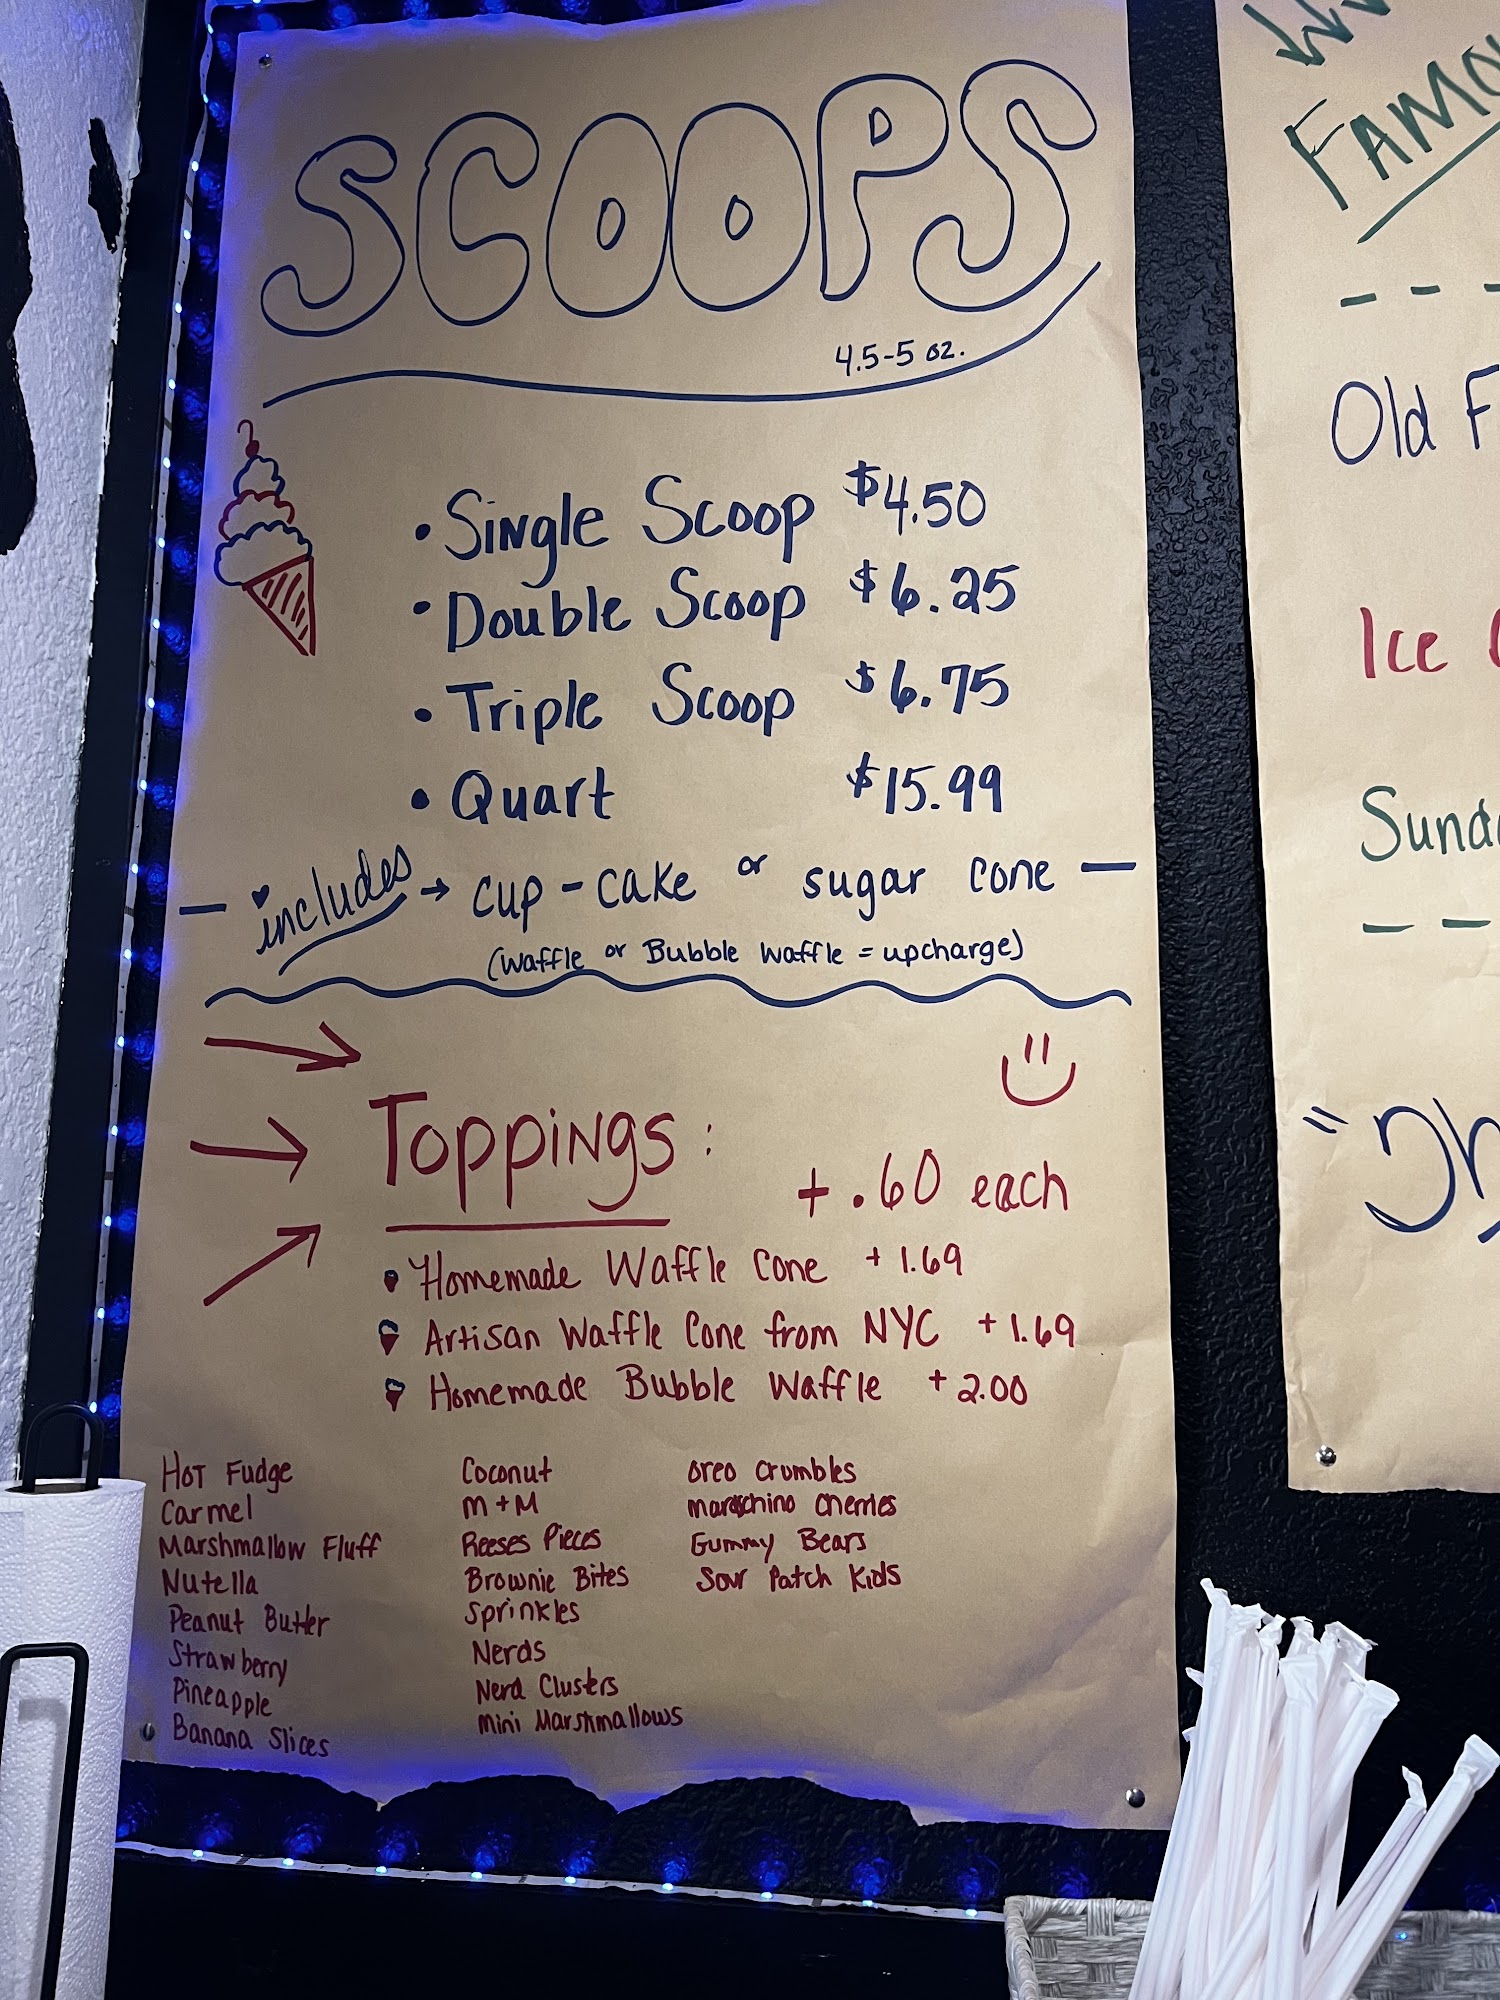 SCOOPS
4.5-5 oz.
• Single Scoop $4.50
• Double Scoop $6.25
• Triple Scoop $6.75
• Quart $15.99
— includes → cup-cake or sugar cone —
(waffle or Bubble waffle = upcharge)
Toppings:
+ .60 each
Homemade Waffle Cone + 1.69
Artisan Waffle Cone from NYC + 1.69
Homemade Bubble Waffle + 2.00
Hot Fudge
Carmel
Marshmallow Fluff
Nutella
Peanut Butter
Strawberry
Pineapple
Banana Slices
Coconut
M+M
Reeses Pieces
Brownie Bites
Sprinkles
Nerds
Nerd Clusters
Mini Marshmallows
Oreo Crumbles
maraschino cherries
Gummy Bears
Sour Patch Kids
Old F
Ice